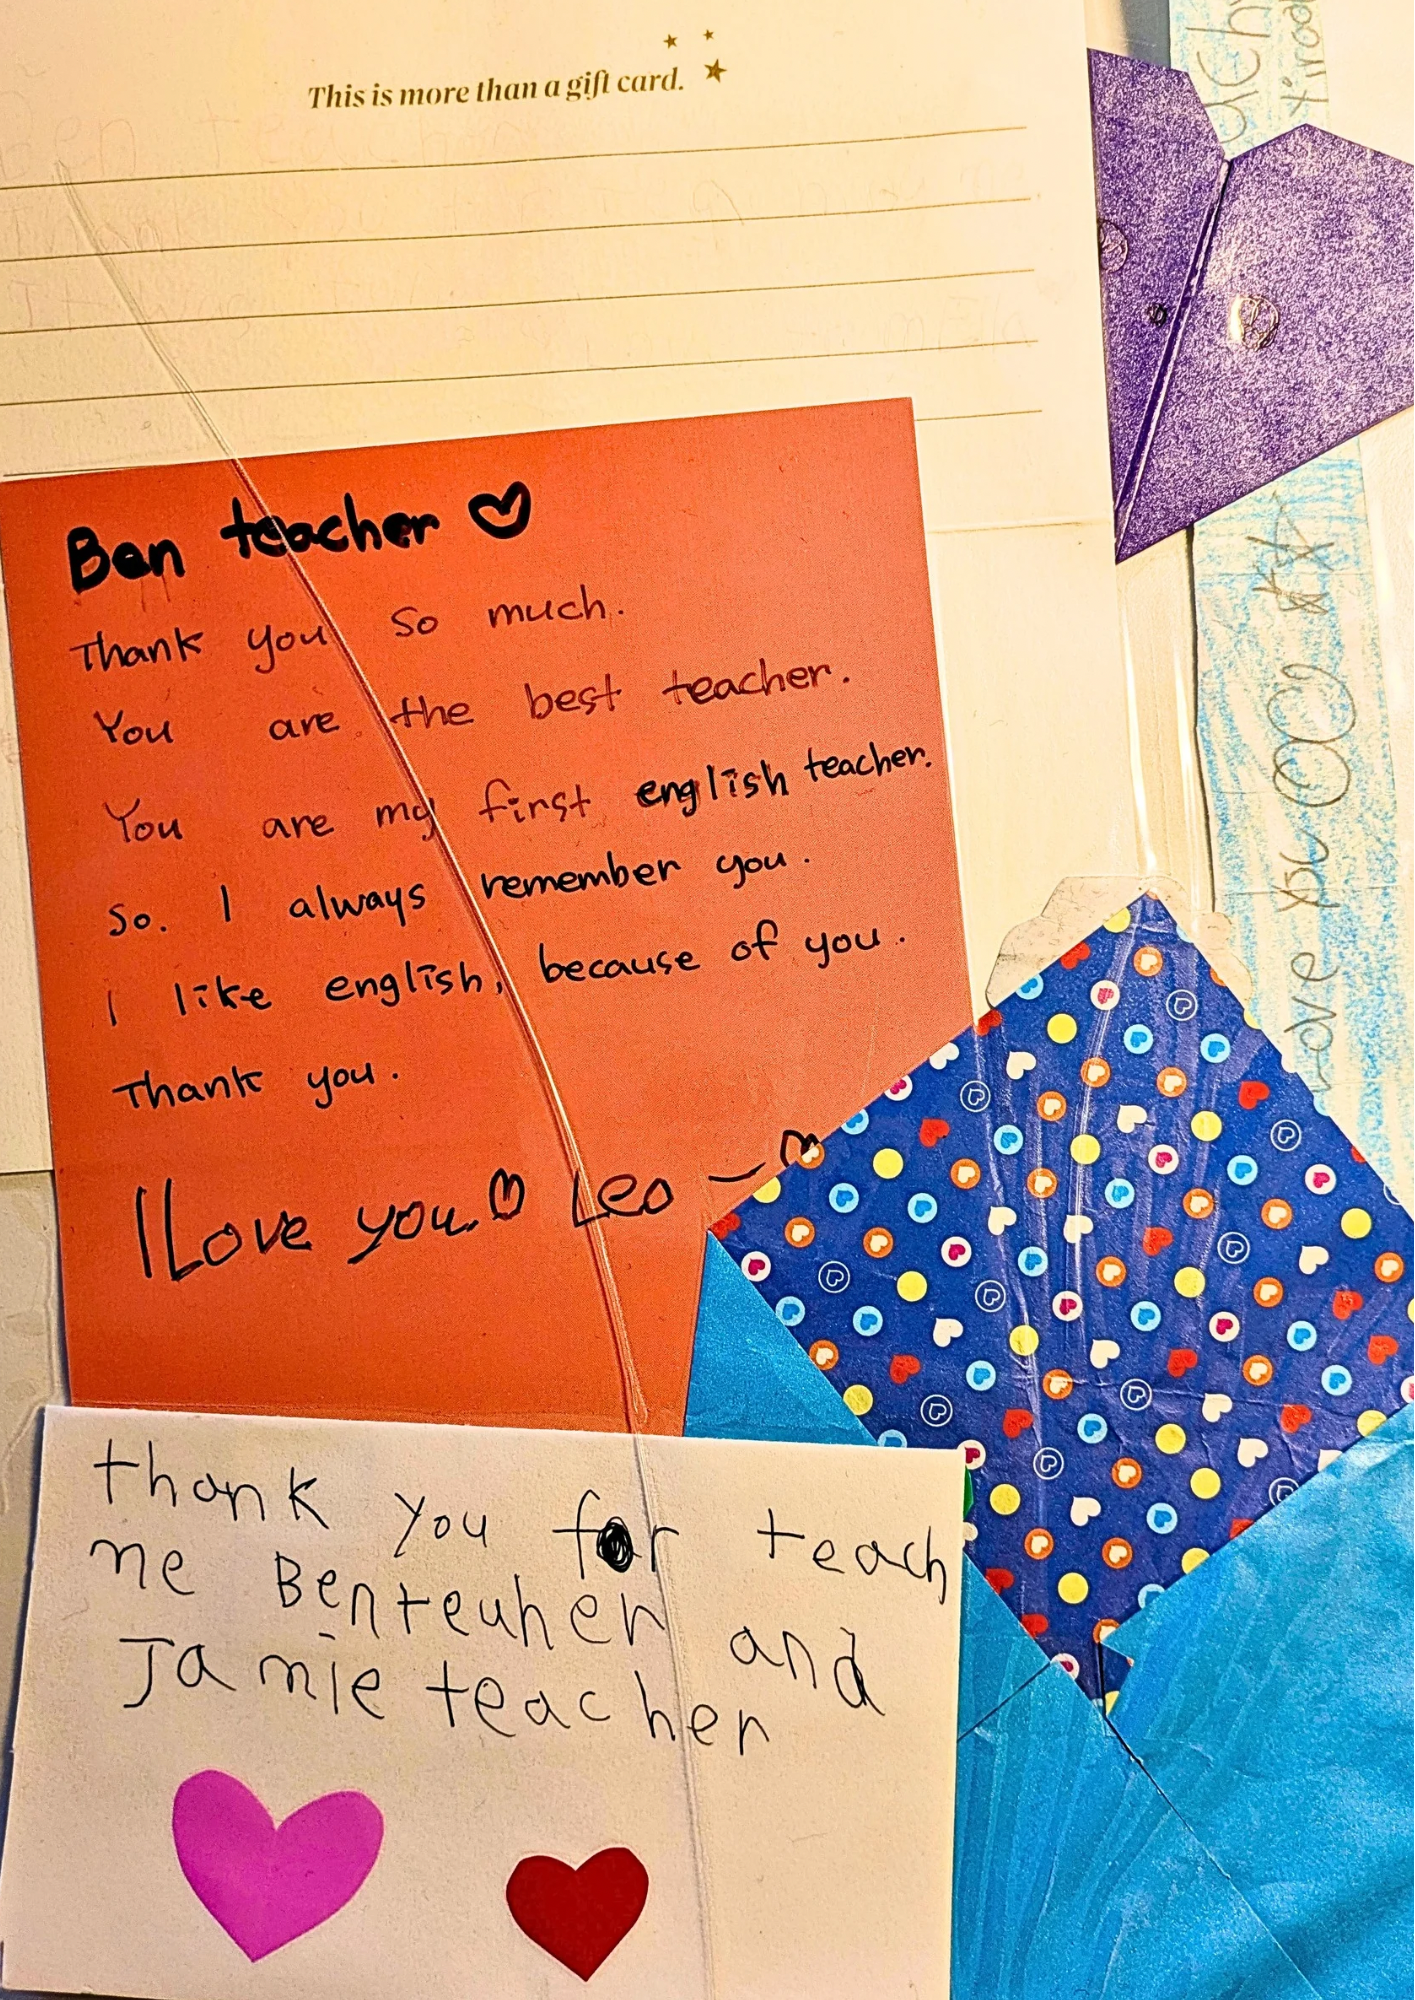 This is more than a gift card.
Ben teacher
Thank you so much.
You are the best teacher.
You are my first english teacher.
So. I always remember you.
I like english, because of you.
Thank you.
I Love you. Leo
thank you for teach
me Benteuher and
Jamie teacher
Love you